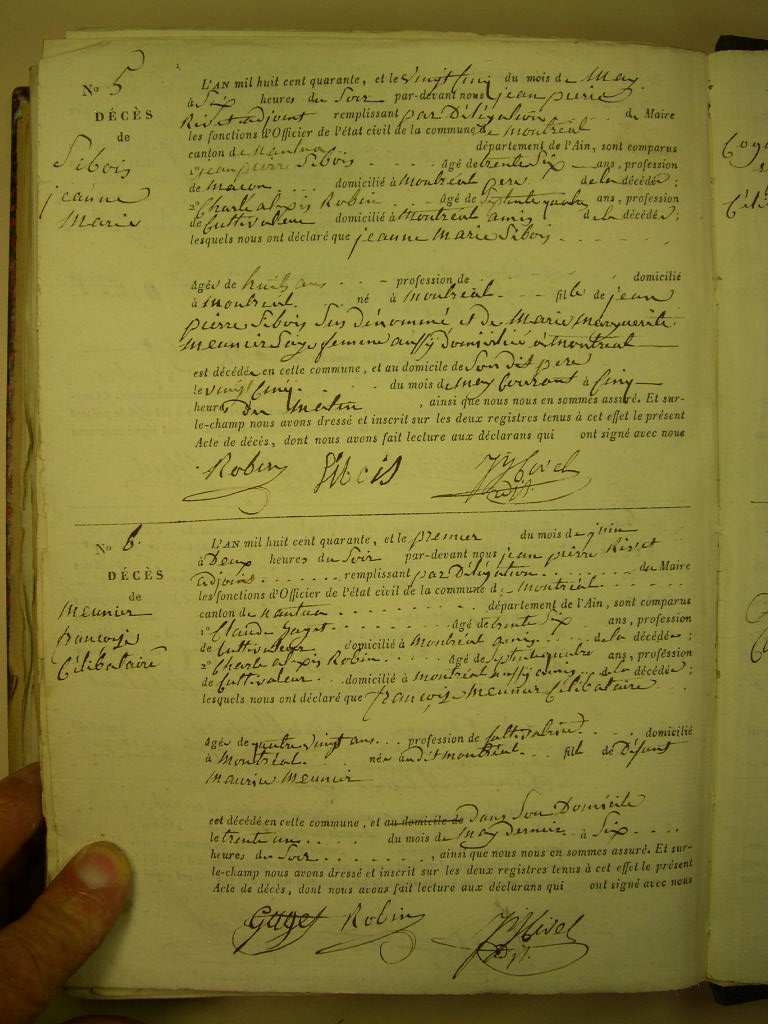 No 5
DÉCÈS
de
Sibois
jeanne
Marie
L'AN mil huit cent quarante, et le vingt cinq du mois de May
à Six heures du Soir par-devant nous jean pierre
Rivet adjoint remplissant par Délégation du Maire
les fonctions d'Officier de l'état civil de la commune de Montréal
canton de Nantua département de l'Ain, sont comparus
1° jean pierre Sibois âgé de trente Six ans, profession
de Maçon domicilié à Montréal père de la décédée;
2° Charle alexis Robin âgé de Septente quatre ans, profession
de Cultivateur domicilié à Montréal amis de la décédée;
lesquels nous ont déclaré que jeanne Marie Sibois
âgée de huit ans profession de domicilié
à Montréal né à Montréal fille de jean
pierre Sibois Sus dénommé et de Marie Marguerite
Meunier Sage femme aussy domicilié à Montréal
est décédée en cette commune, et au domicile de Son dit père
le vingt Cinq du mois de May Courant à Cinq
heures Du Matin, ainsi que nous nous en sommes assuré. Et sur-
le-champ nous avons dressé et inscrit sur les deux registres tenus à cet effet le présent
Acte de décès, dont nous avons fait lecture aux déclarans qui ont signé avec nous
Robin Sibois Rivet
No 6.
DÉCÈS
de
Meunier
françoise
Célibataire
L'AN mil huit cent quarante, et le premier du mois de juin
à Deux heures du Soir par-devant nous jean pierre Rivet
adjoint remplissant par Délégation du Maire
les fonctions d'Officier de l'état civil de la commune de Montréal
canton de Nantua département de l'Ain, sont comparus
1° Claude Gaget âgé de trente Six ans, profession
de Cultivateur domicilié à Montréal amis de la décédée;
2° Charle alexis Robin âgé de Septente quatre ans, profession
de Cultivateur domicilié à Montréal aussy amis de la décédée;
lesquels nous ont déclaré que françoise Meunier Célibataire
âgée de quatre vingt ans profession de Cultivatrice domicilié
à Montréal née audit Montréal fille de Défunt
Maurice Meunier
est décédé en cette commune, et au domicile de Dans Son Domicile
le trente un du mois de May dernier à Six
heures du Soir, ainsi que nous nous en sommes assuré. Et sur-
le-champ nous avons dressé et inscrit sur les deux registres tenus à cet effet le présent
Acte de décès, dont nous avons fait lecture aux déclarans qui ont signé avec nous
Gaget Robin Rivet